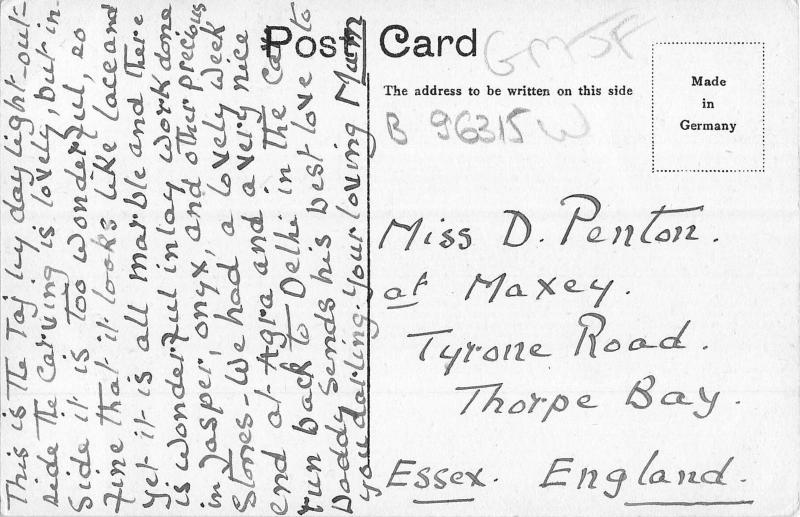 Post Card
The address to be written on this side
Made
in
Germany
GMSF
B 96315 W
This is the Taj by day light - out-
side the carving is lovely, but in-
side it is too wonderful, so
fine that it looks like lace and
yet it is all marble and there
is wonderful inlay work done
in Jasper, onyx, and other precious
Stones - We had a lovely week
end at Agra and a very nice
run back to Delhi in the Car
Daddy Sends his best love to
you darling. Your loving Mum
Miss D. Penton.
at Maxey.
Tyrone Road.
Thorpe Bay.
Essex. England.